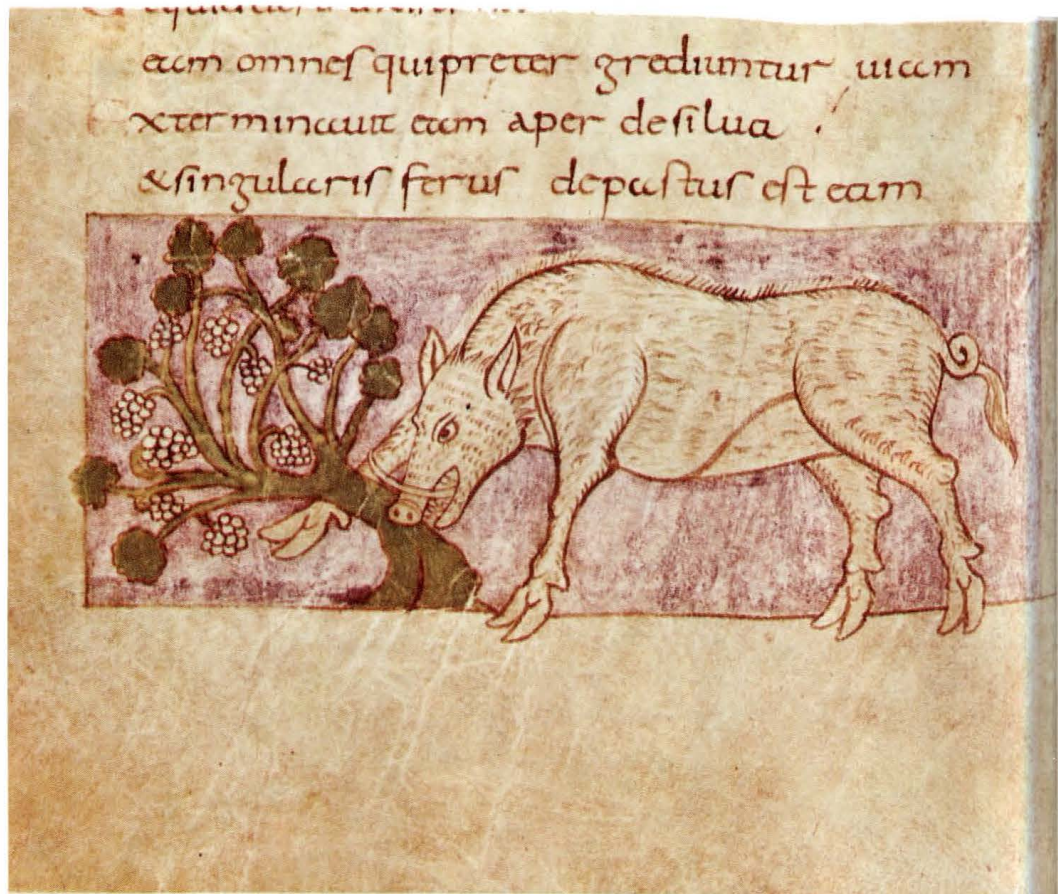 eam omnes qui preter grediuntur uiam
xterminauit eam aper de silua .
& singularis ferus depastus est eam